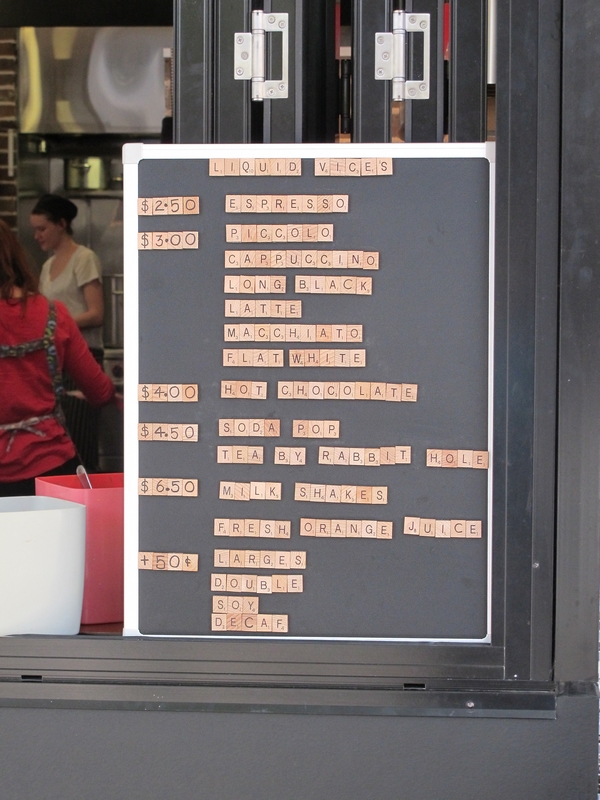 LIQUID VICES
$2.50 ESPRESSO
$3.00 PICCOLO
CAPPUCCINO
LONG BLACK
LATTE
MACCHIATO
FLAT WHITE
$4.00 HOT CHOCOLATE
$4.50 SODA POP
TEA BY RABBIT HOLE
$6.50 MILK SHAKES
FRESH ORANGE JUICE
+50¢ LARGES
DOUBLE
SOY
DECAF